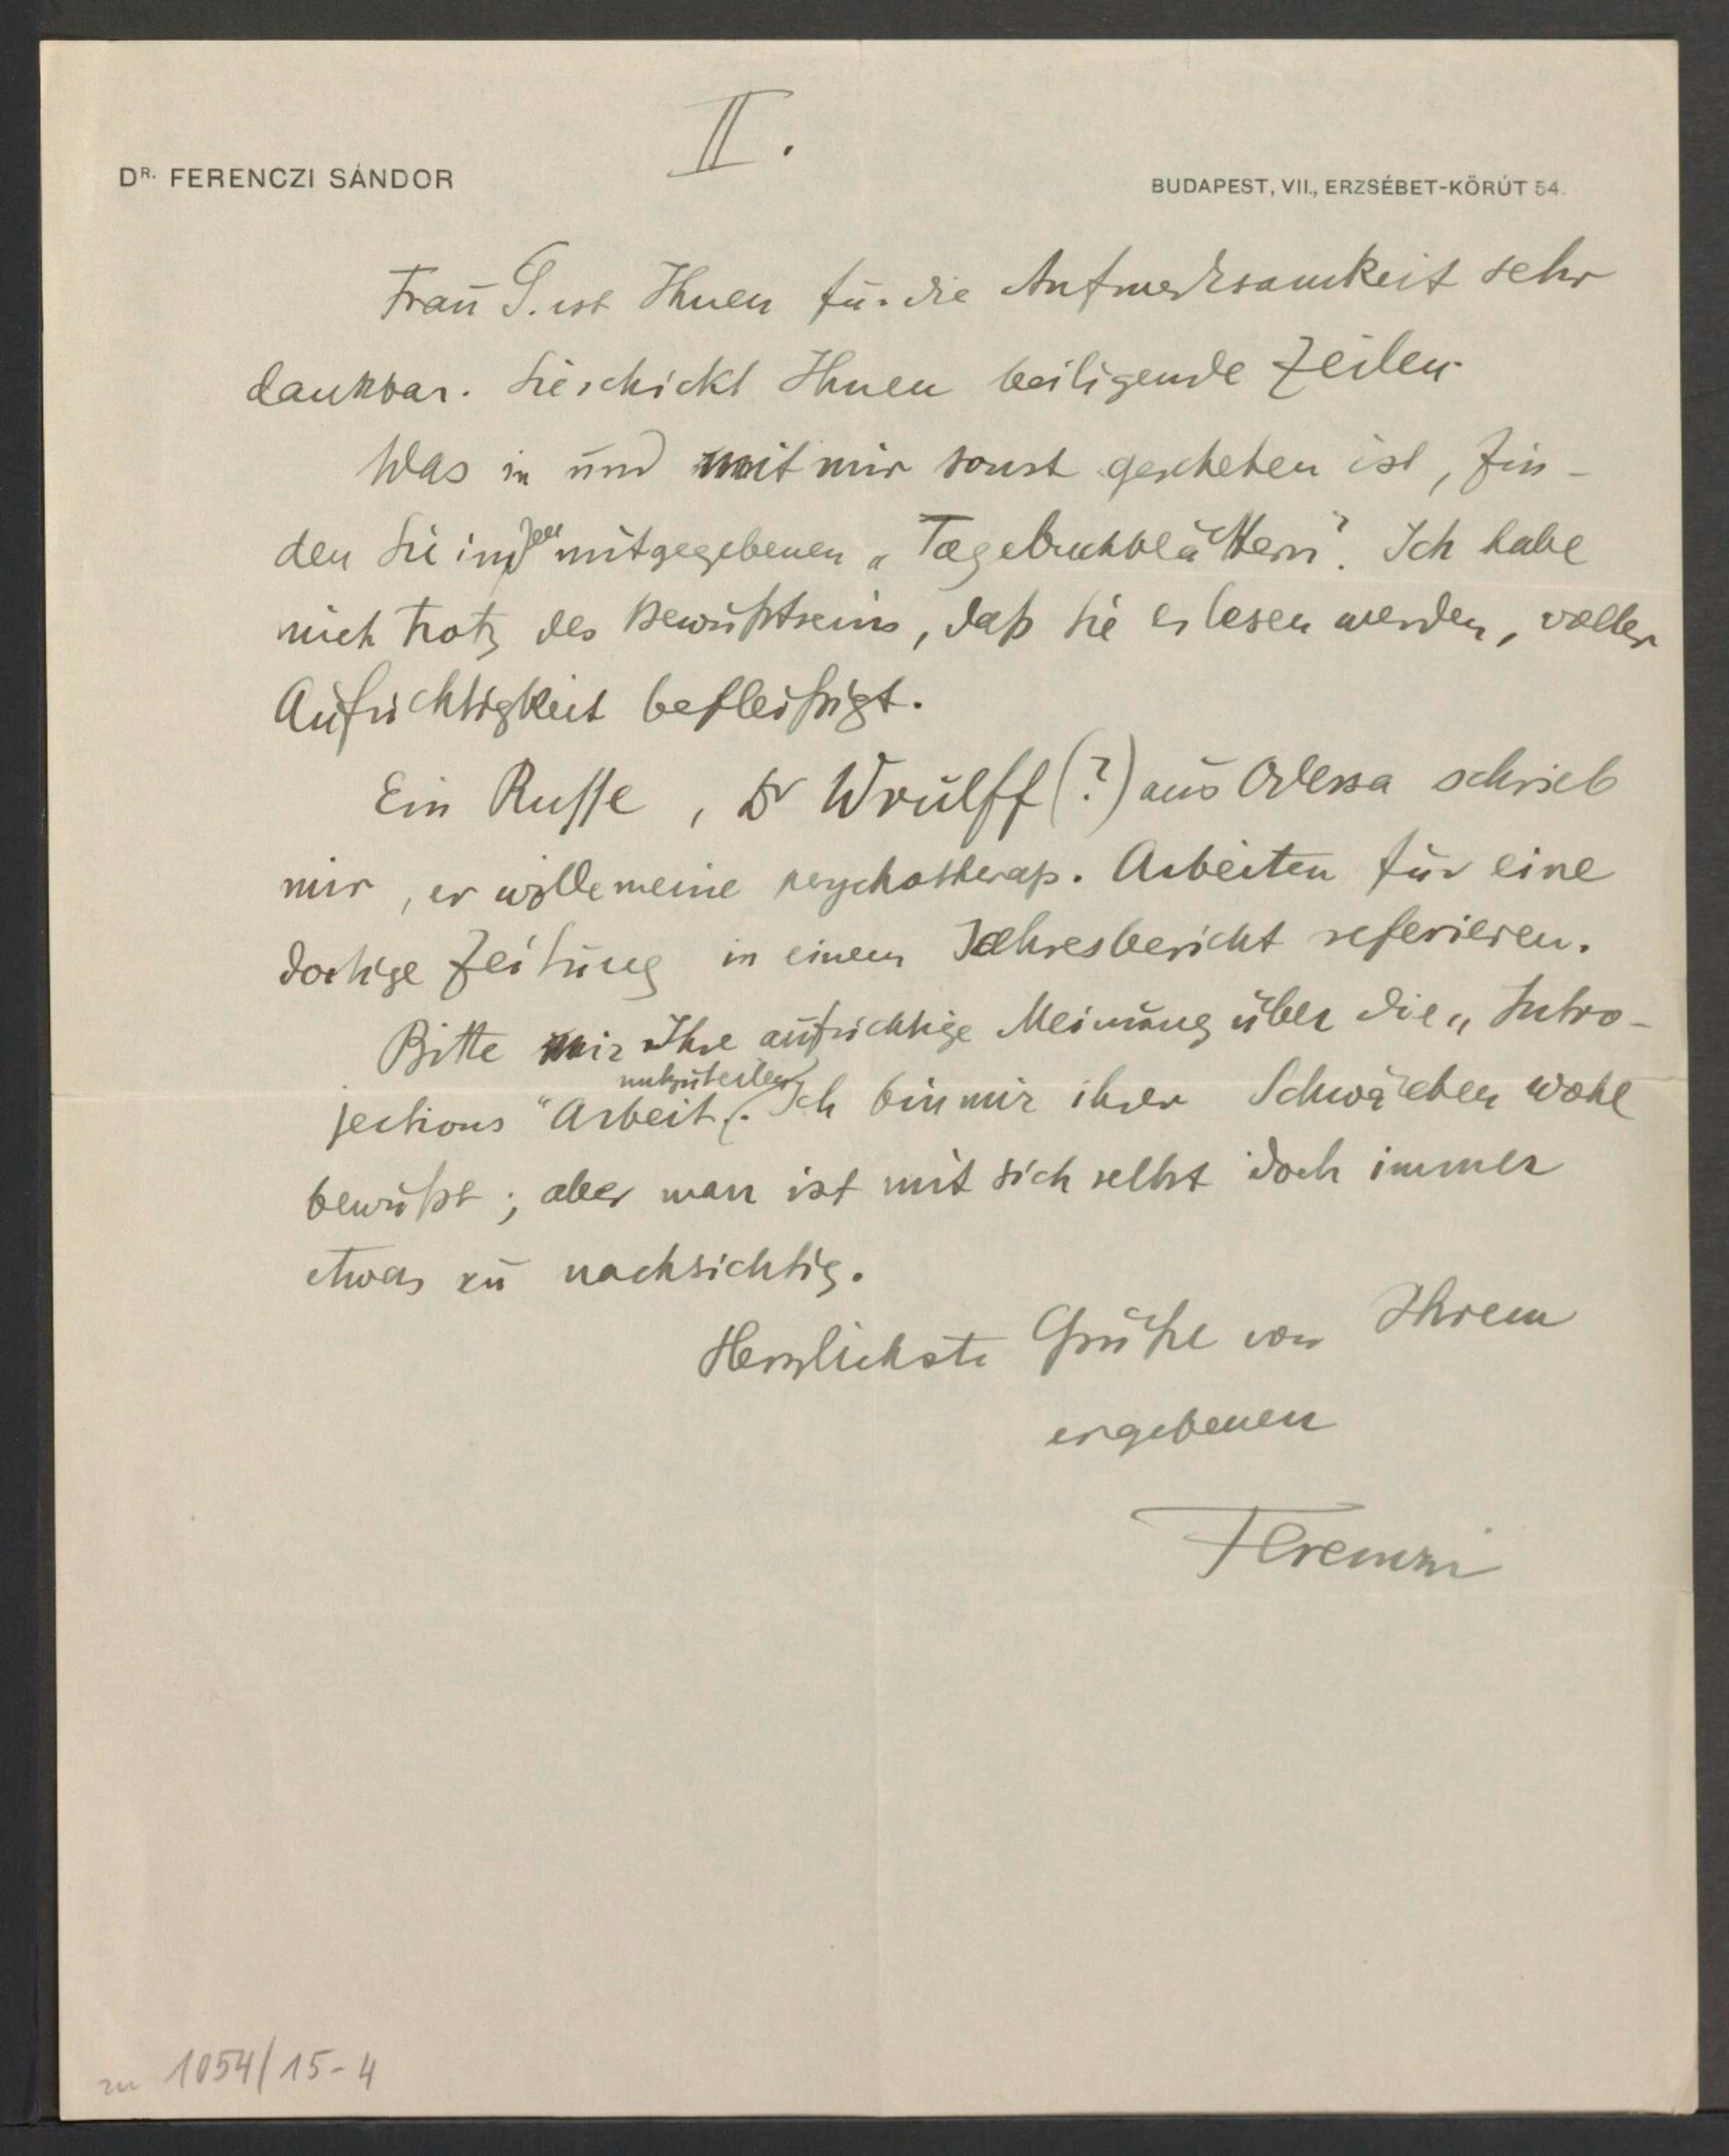 II.
DR. FERENCZI SÁNDOR
BUDAPEST, VII., ERZSÉBET-KÖRÚT 54.
Frau G. ist Ihnen für die Aufmerksamkeit sehr
dankbar. Sie schickt Ihnen beiligende Zeilen.
Was in und mit mir sonst geschehen ist, fin-
den Sie in den mitgegebenen „Tagebuchblättern". Ich habe
mich trotz des Bewußtseins, daß Sie es lesen werden, voller
Aufrichtigkeit befleißigt.
Ein Russe, Dr Wrulff (?) aus Odessa schrieb
mir, er wolle meine psychotherap. Arbeiten für eine
dortige Zeitung in einem Jahresbericht referieren.
Bitte mir Ihre aufrichtige Meinung über die „Intro-
jections" Arbeit mitzuteilen. Ich bin mir ihrer Schwächen wohl
bewußt; aber man ist mit sich selbst doch immer
etwas zu nachsichtig.
Herzlichste Grüße von Ihrem
ergebenen
Ferenczi
zu 1054/15-4